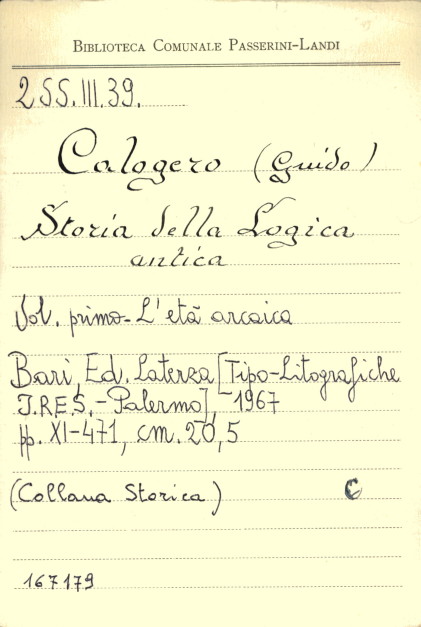 BIBLIOTECA COMUNALE PASSERINI-LANDI
2SS.III.39.
Calogero (Guido)
Storia della Logica
antica
Vol. primo- L'età arcaica
Bari, Ed. Laterza [Tipo-Litografiche
I.RE.S.-Palermo], 1967
pp. XI-471, cm. 20,5
(Collana Storica) C
167179